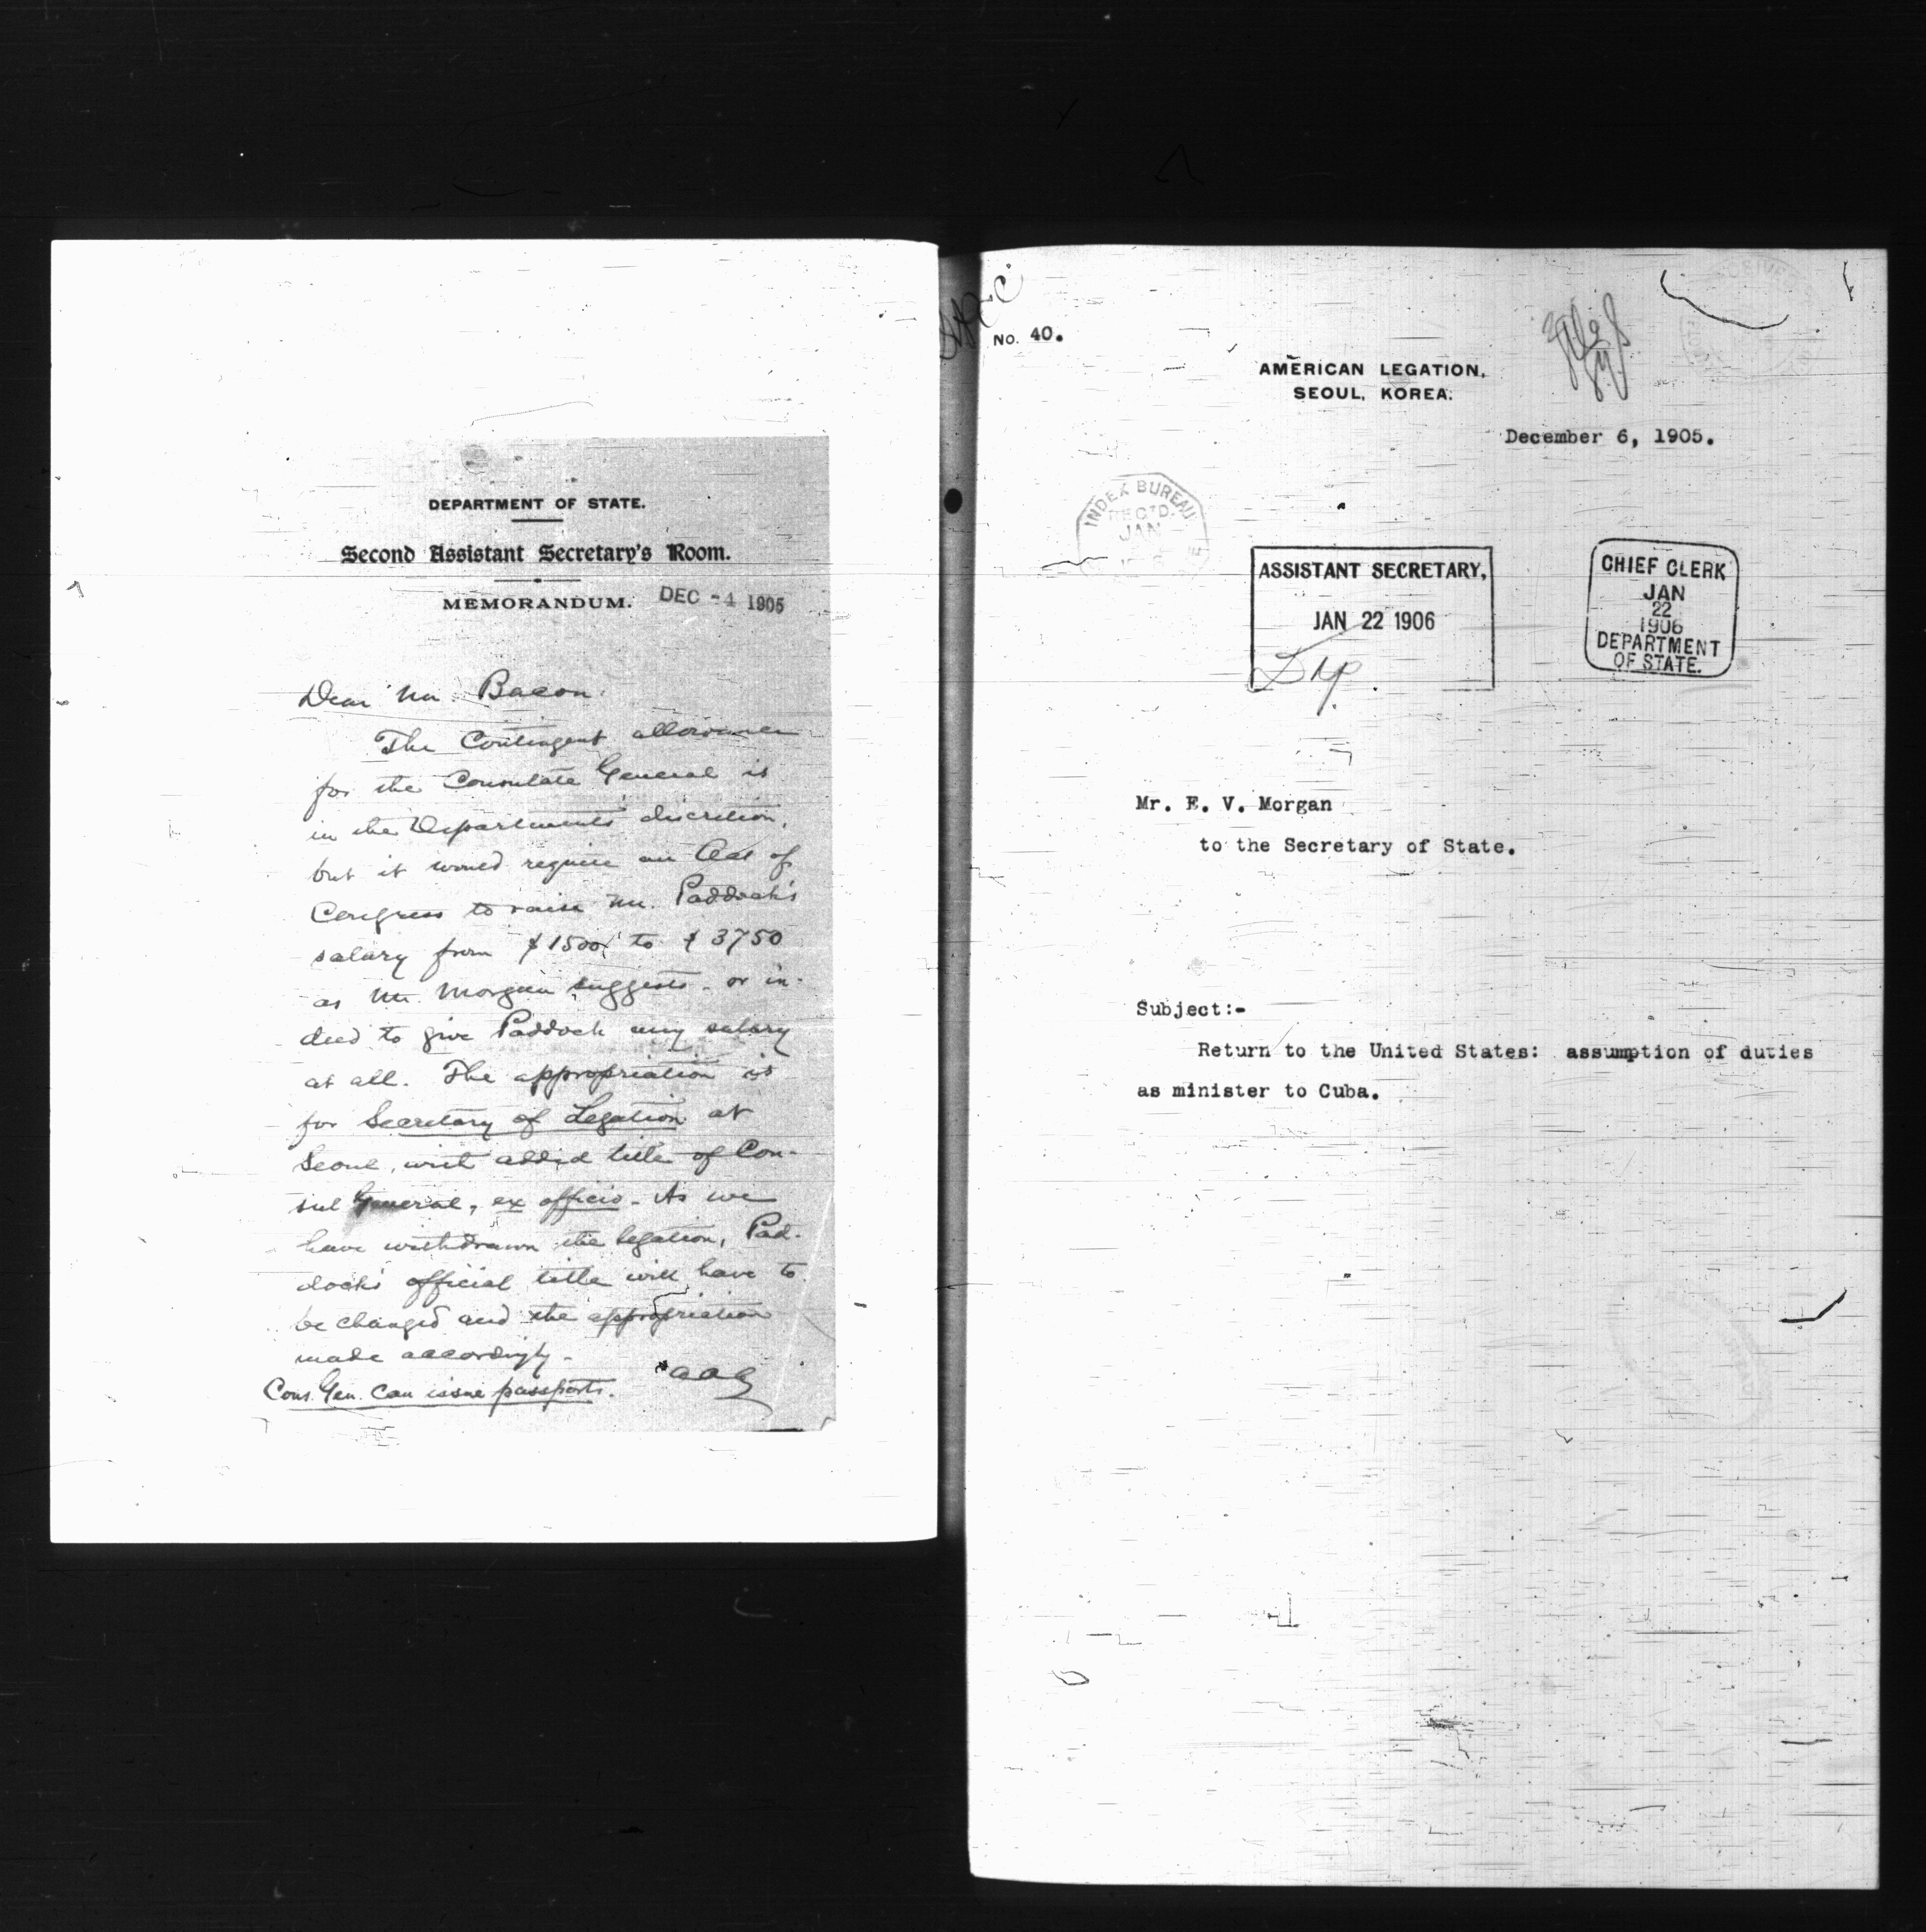 DEPARTMENT OF STATE.
Second Assistant Secretary's Room.
MEMORANDUM.
DEC -4 1905
Dear Mr. Bacon.
The Contingent allowance
for the Consulate General is
in the Department's discretion,
but it would require an Act of
Congress to raise Mr. Paddock's
salary from $1500 to $3750
as Mr. Morgan suggests - or in-
deed to give Paddock any salary
at all. The appropriation is
for Secretary of Legation at
Seoul, with added title of Con-
sul General, ex officio. As we
have withdrawn the legation, Pad-
dock's official title will have to
be changed and the appropriation
made accordingly.
AAA
Cons. Gen. can issue passports.
No. 40.
AMERICAN LEGATION,
SEOUL, KOREA.
December 6, 1905.
INDEX BUREAU
REC'D.
JAN
ASSISTANT SECRETARY,
JAN 22 1906
CHIEF CLERK
JAN
22
1906
DEPARTMENT
OF STATE.
Mr. E. V. Morgan
to the Secretary of State.
Subject:-
Return to the United States: assumption of duties
as minister to Cuba.